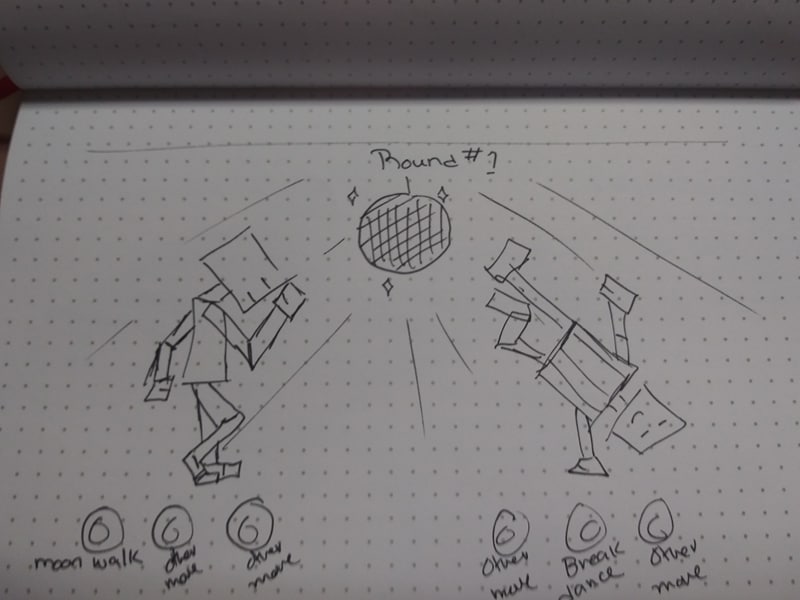 Round #1
moon walk
other move
other move
other move
Break dance
other move